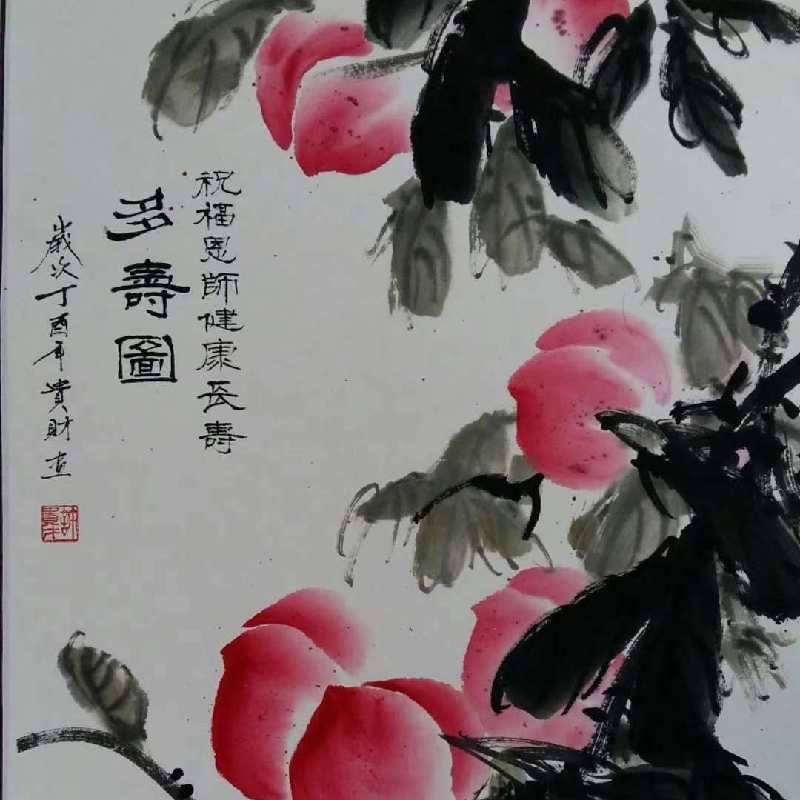 祝福恩師健康長壽
多壽圖
歲次丁酉年貴財画